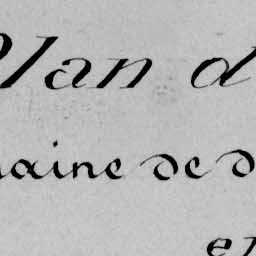 Plan d
maine de d
et